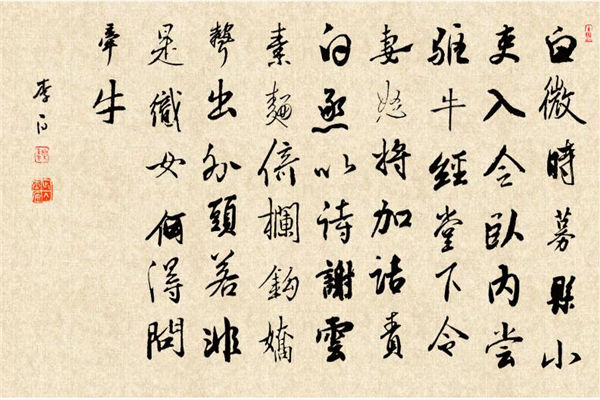 白微時募縣小
吏入令臥內嘗
驅牛經堂下令
妻怒將加詰責
白亟以詩謝雲
素麵倚欄鉤嬌
聲出外頭若非
是織女何得問
牽牛
李白